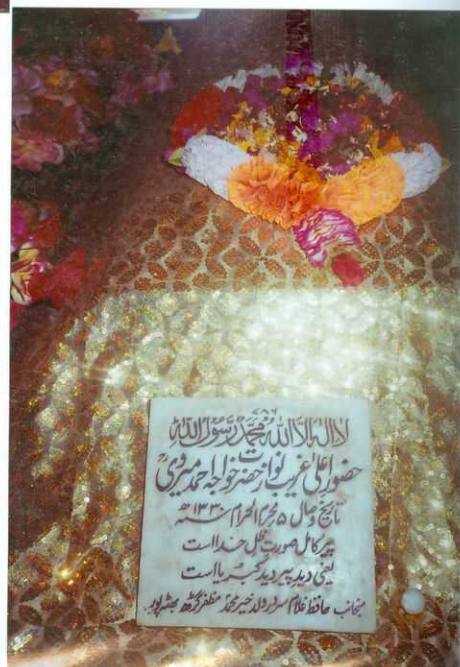 ۷۸۶
لا اله الا الله محمد رسول الله
حضور اعلیٰ غریب نواز حضرت خواجہ احمد میروی
تاریخ وصال ۵ محرم الحرام سنہ ۱۳۳۰ھ
پیر کامل صورت ظل خدا است
یعنی دید پیر دید کبریا است
منجانب حافظ غلام سرور ولد خیر محمد مظفر گڑھ بھٹہ پور